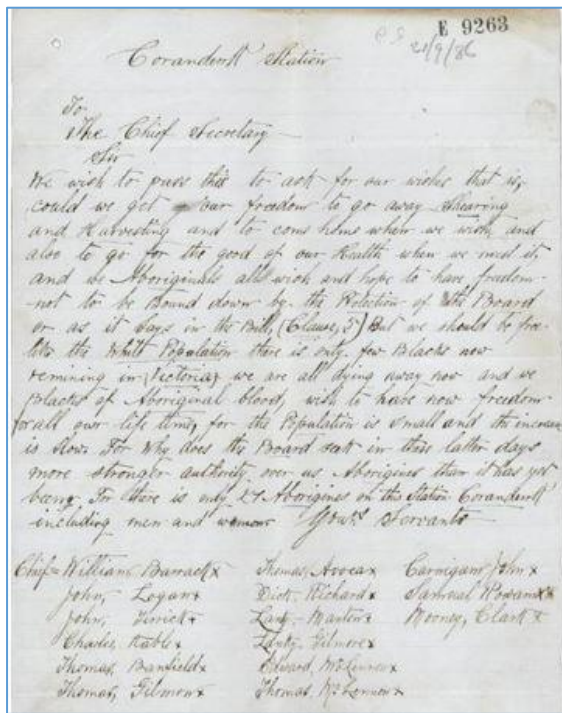 E 9263
21/9/86
Coranderrk Station
To
The Chief Secretary
Sir
We wish to pass this to ask for our wishes that is,
could we get our freedom to go away Shearing
and Harvesting and to come home when we wish and
also to go for the good of our Health when we need it,
and we Aboriginals all wish and hope to have freedom
not to be Bound down by the Protection of the Board
or as it says in the Bill, (Clause, 5) But we should be free
like the White Population there is only few Blacks now
remining in (Victoria) we are all dying away now and we
Blacks of Aboriginal blood, wish to have now freedom
for all our life time, for the Population is small and the increase
is slow. For Why does the Board seek in these latter days
more stronger authority over us Aborigines than it has yet
being For there is only Aborigines on this Station Coranderrk
including men and women Yours Servants
Chief = William Barrack x Thomas, Avoca x John x
John, Logan x Dick, Richard x Samual x
John, Terrick x Lanky, x Mooney, Clark x
Charles, x Gilmore x
Thomas, Banfield x Edward, McLennon x
Thomas, Gilmour x Thomas, McLennon x